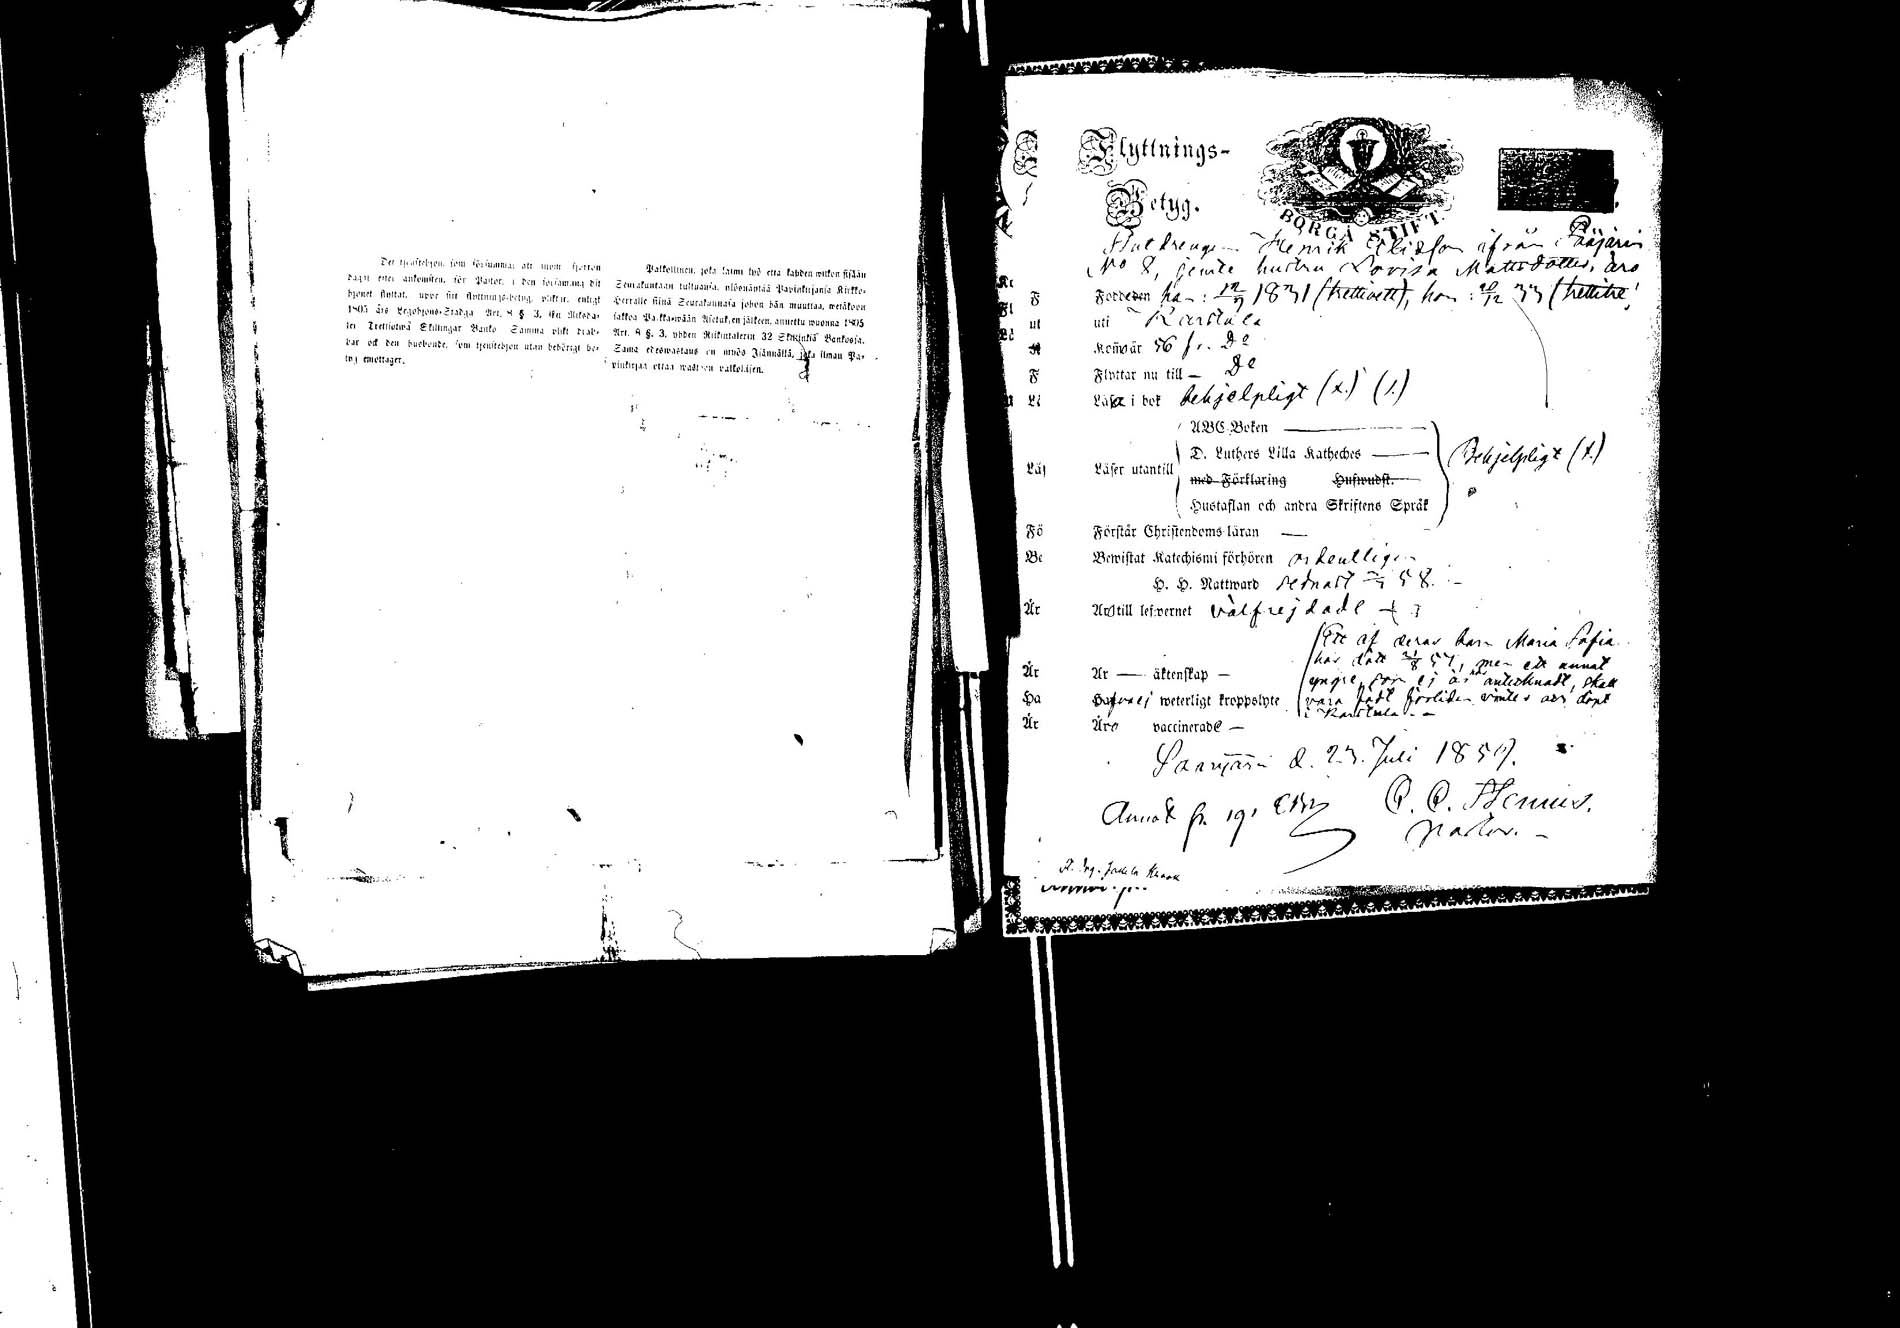 Det tjenstehjon, som försummar att inom fjorton
dagar efter ankomsten, för Pastor i den församling dit
hjonet flyttat, uppte sitt flyttnings-betyg, plikte, enligt
1805 års Legohjons-Stadga Art. 8 § 3, En Riksda-
ler Trettiotwå Skillingar Banko. Samma plikt draб-
bar ock den husbonde, som tjenstehjon utan behörigt be-
tyg emottager.
Palkollinen, joka laimi lyö että kahden wiikon sisään
Seurakuntaan tultuansa, ylösnäyttää Papinkirjansa Kirkko-
Herralle siinä Seurakunnasa johon hän muuttaa, wetäköön
sakkoa Palkkawäen Asetuksen jälkeen, annettu wuonna 1805
Art. 8 §. 3, yhden Riikintalerin 32 Skillinkiä Bankosja.
Sama edeswastaus on myös Isännällä, joka ilman Pa-
pinkirjaa ottaa wastaan palkolaisen.
Flyttnings-
Betyg.
BORGÅ STIFT
Henrik Elisson ifrån Pääjärvi
No 8, jemte hustru Lovisa Mattsdotter, äro
Födde han: 12/9 1831 (trettiett), hon: 20/12 33 (trettitre)
uti Karstula
Kom här 56 fr. Do
Flyttar nu till — Do
Läsa i bok behjelpligt (x.) (x.)
ABC-Boken
D. Luthers Lilla Katheches
Läser utantill
Behjelpligt (x.)
med Förklaring Hufwudst.
Hustaflan och andra Skriftens Språk
Förstår Christendoms-läran —
Bewistat Katechismi förhören ordentligen
H. H. Nattward sednast 58. —
Är till lefvernet välfrejdade
Ett af deras barn Maria Sofia
har dött 57, men ett annat
Är — äktenskap —
yngre, som ej är antecknadt, skall
Hafva ej weterligt kroppslyte
vara född förliden vinter och döpt
i Karstula. —
Äro vaccinerade —
Saarijärvi d. 23. Juli 1859.
C. C. Stenius.
Pastor. —